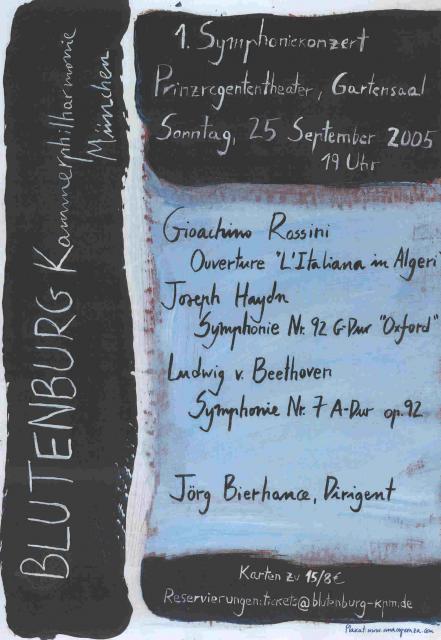 BLUTENBURG Kammerphilharmonie
München
1. Symphoniekonzert
Prinzregententheater, Gartensaal
Sonntag, 25 September 2005
19 Uhr
Gioachino Rossini
Ouverture "L'Italiana in Algeri"
Joseph Haydn
Symphonie Nr. 92 G-Dur "Oxford"
Ludwig v. Beethoven
Symphonie Nr. 7 A-Dur op. 92
Jörg Bierhance, Dirigent
Karten zu 15/8€
Reservierungen: tickets@blutenburg-kpm.de
Plakat: